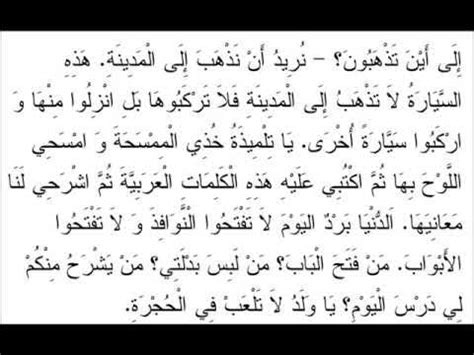 إِلَى أَيْنَ تَذْهَبُونَ؟ – نُرِيدُ أَنْ نَذْهَبَ إِلَى الْمَدِينَةِ. هَذِهِ
السَّيَّارَةُ لَا تَذْهَبُ إِلَى الْمَدِينَةِ فَلَا تَرْكَبُوهَا بَل انْزِلُوا مِنْهَا وَ
ارْكَبُوا سَيَّارَةً أُخْرَى. يَا تِلْمِيذَةُ خُذِي الْمِمْسَحَةَ وَ امْسَحِي
اللَّوْحَ بِهَا ثُمَّ اكْتُبِي عَلَيْهِ هَذِهِ الْكَلِمَاتِ الْعَرَبِيَّةَ ثُمَّ اشْرَحِي لَنَا
مَعَانِيَهَا. اَلدُّنْيَا بَرْدٌ الْيَوْمَ لَا تَفْتَحُوا النَّوَافِذَ وَ لَا تَفْتَحُوا
الْأَبْوَابَ. مَنْ فَتَحَ الْبَابَ؟ مَنْ لَبِسَ بَدْلَتِي؟ مَنْ يَشْرَحُ مِنْكُمْ
لِي دَرْسَ الْيَوْمِ؟ يَا وَلَدُ لَا تَلْعَبْ فِي الْحُجْرَةِ.